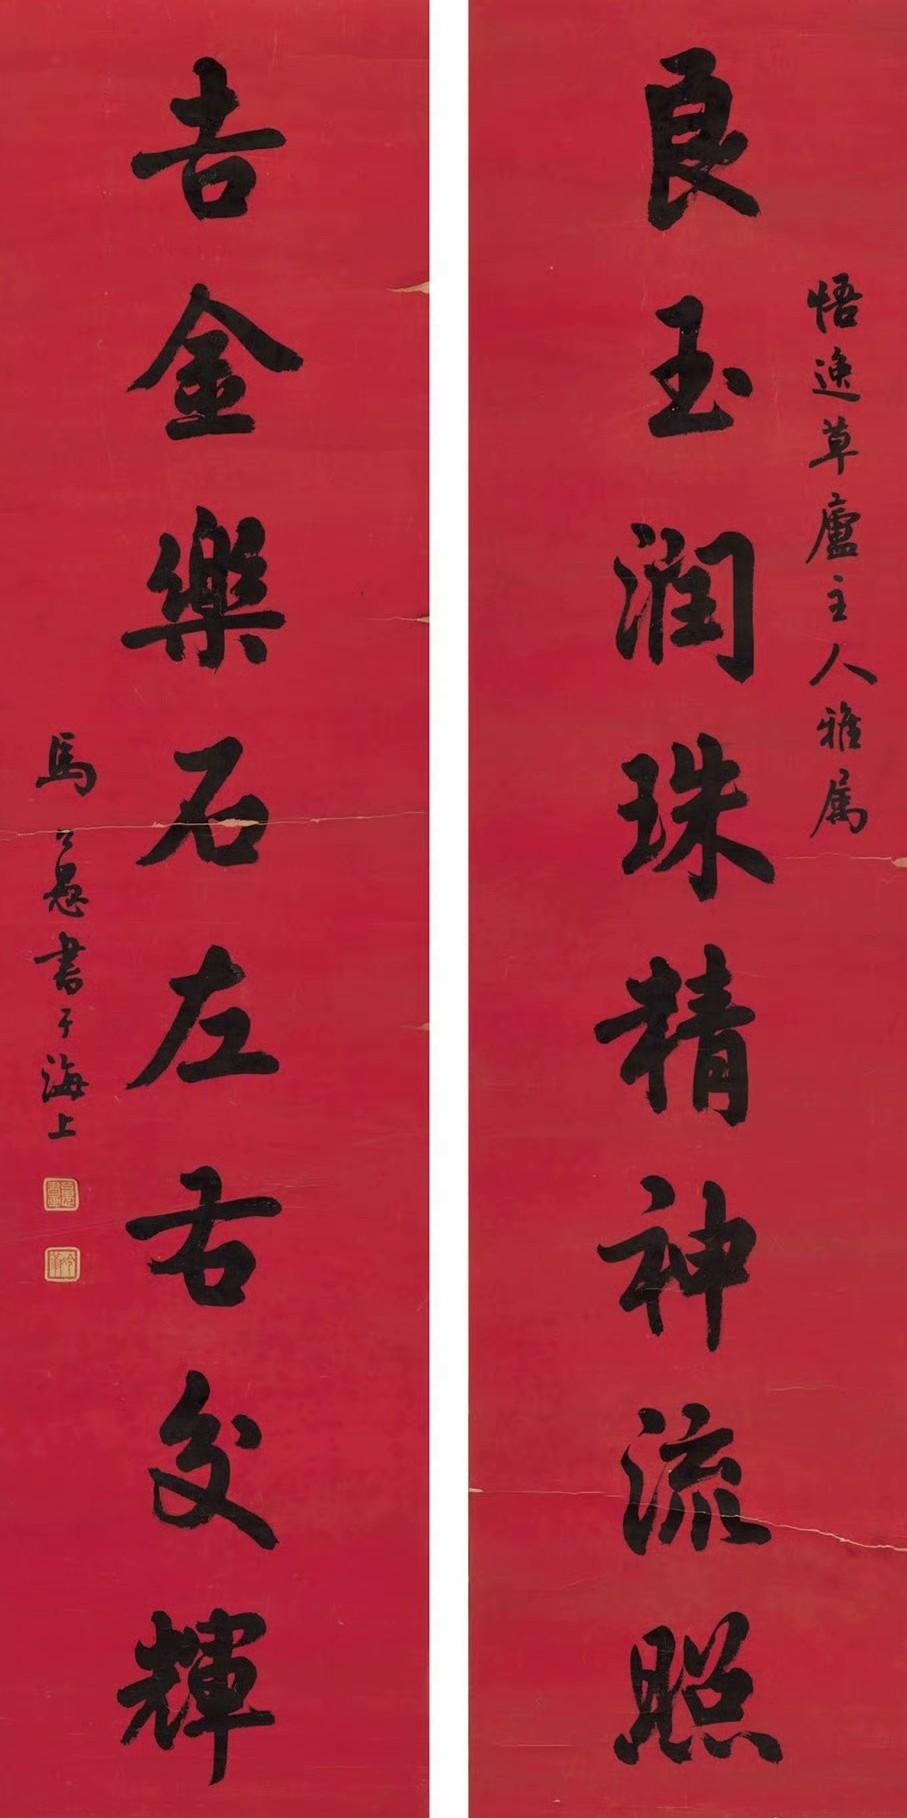 悟逸草廬主人雅属
良玉潤珠精神流照
吉金樂石左右交輝
馬公愚書于海上